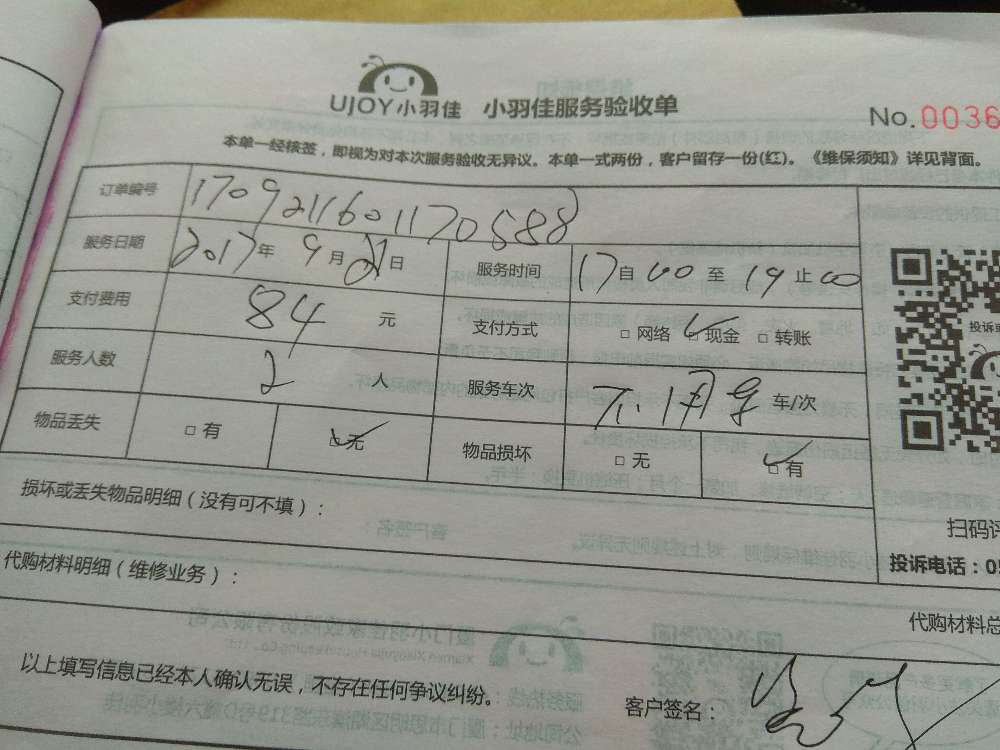 UJOY小羽佳 小羽佳服务验收单
No.0036
本单一经核签，即视为对本次服务验收无异议。本单一式两份，客户留存一份(红)。《维保须知》详见背面。
订单编号 1709211601170588
服务日期 2017年 9月21日 服务时间 17自00至19止00
支付费用 84 元 支付方式 □ 网络 ☑ 现金 □ 转账
服务人数 2 人 服务车次 不用车 车/次
物品丢失 □ 有 ☑ 无 物品损坏 □ 无 ☑ 有
损坏或丢失物品明细（没有可不填）：
扫码评
代购材料明细（维修业务）：
投诉电话：05
代购材料总
以上填写信息已经本人确认无误，不存在任何争议纠纷。
客户签名：